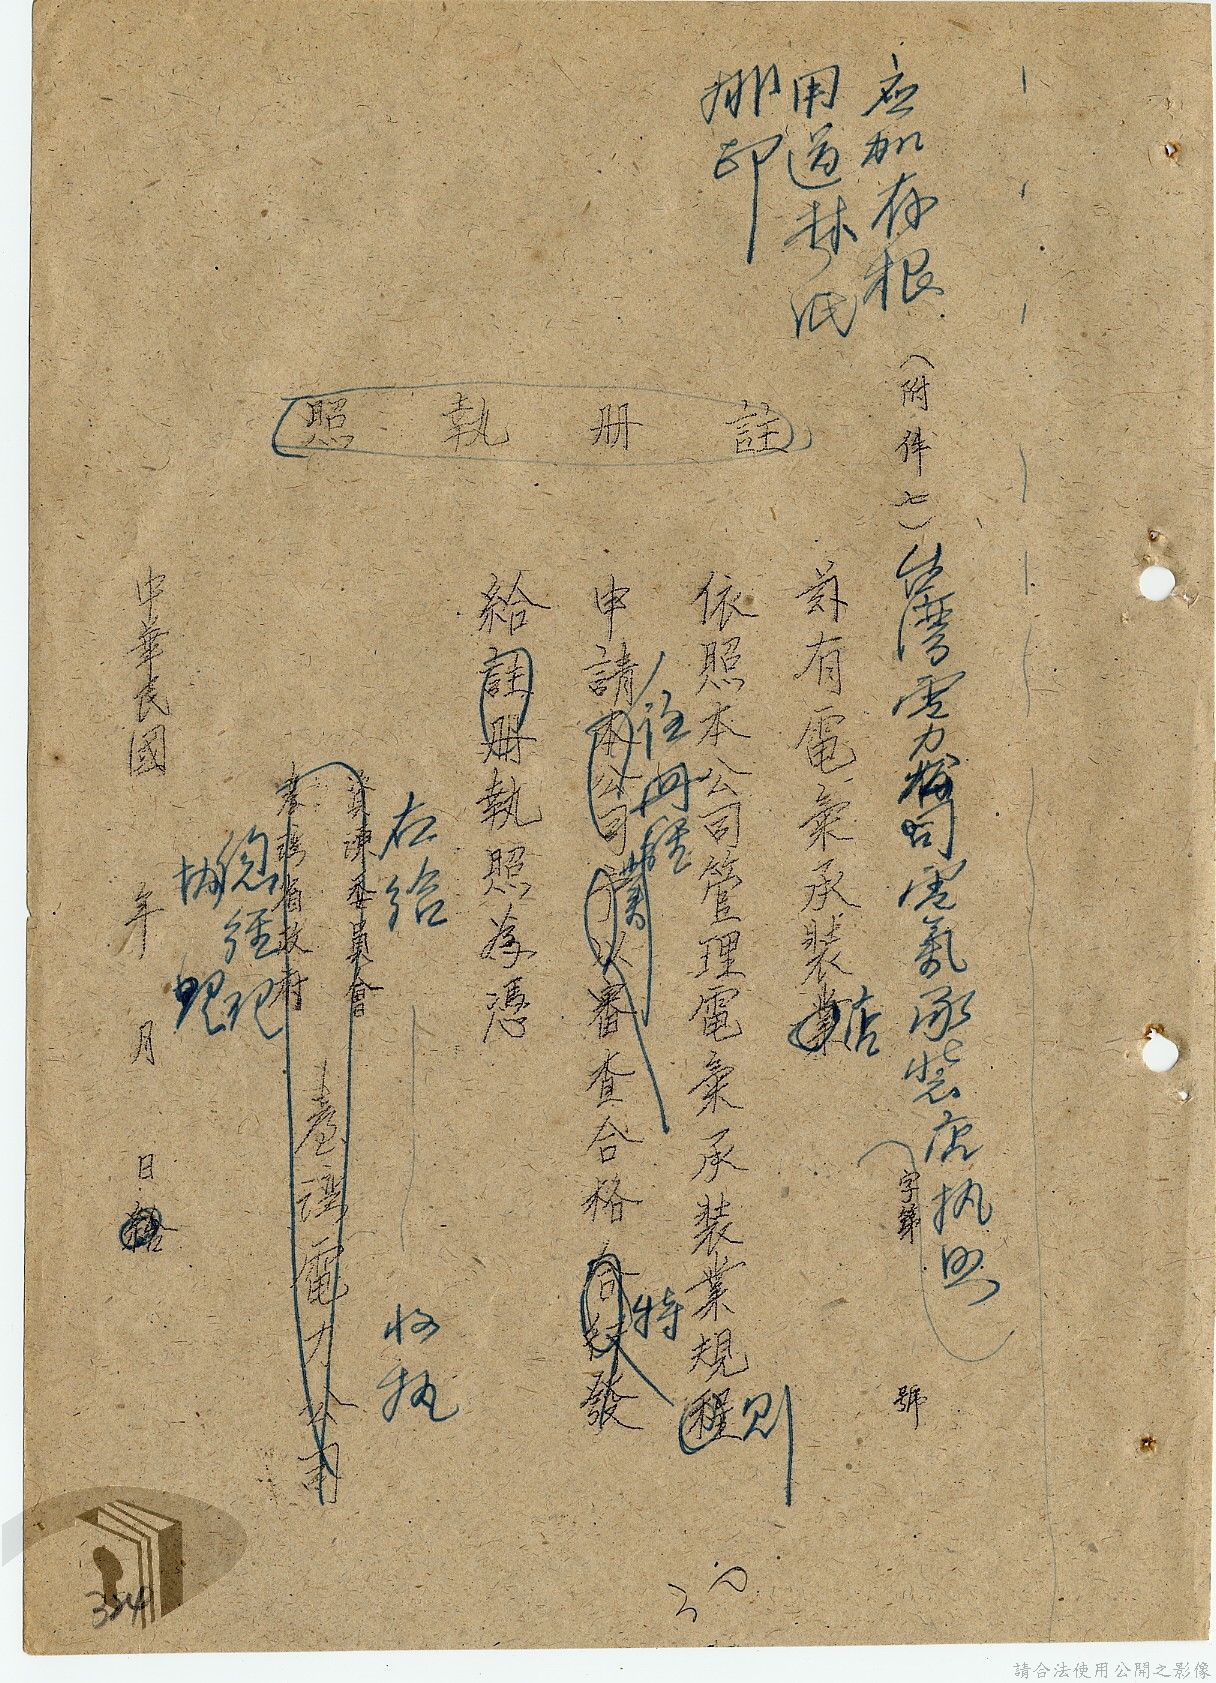 應加存根
用道林紙
排印
(附件七)台灣電力公司電氣承裝店執照
字第 號
註冊執照
茲有電氣承裝業店
依照本公司管理電氣承裝業規程則
申請本公司予以審查合格合行發
註冊經
特
給註冊執照為憑
右給
收執
資源委員會
臺灣省政府
臺灣電力公司
總經理
協理
中華民國 年 月 日給
324
請合法使用公開之影像